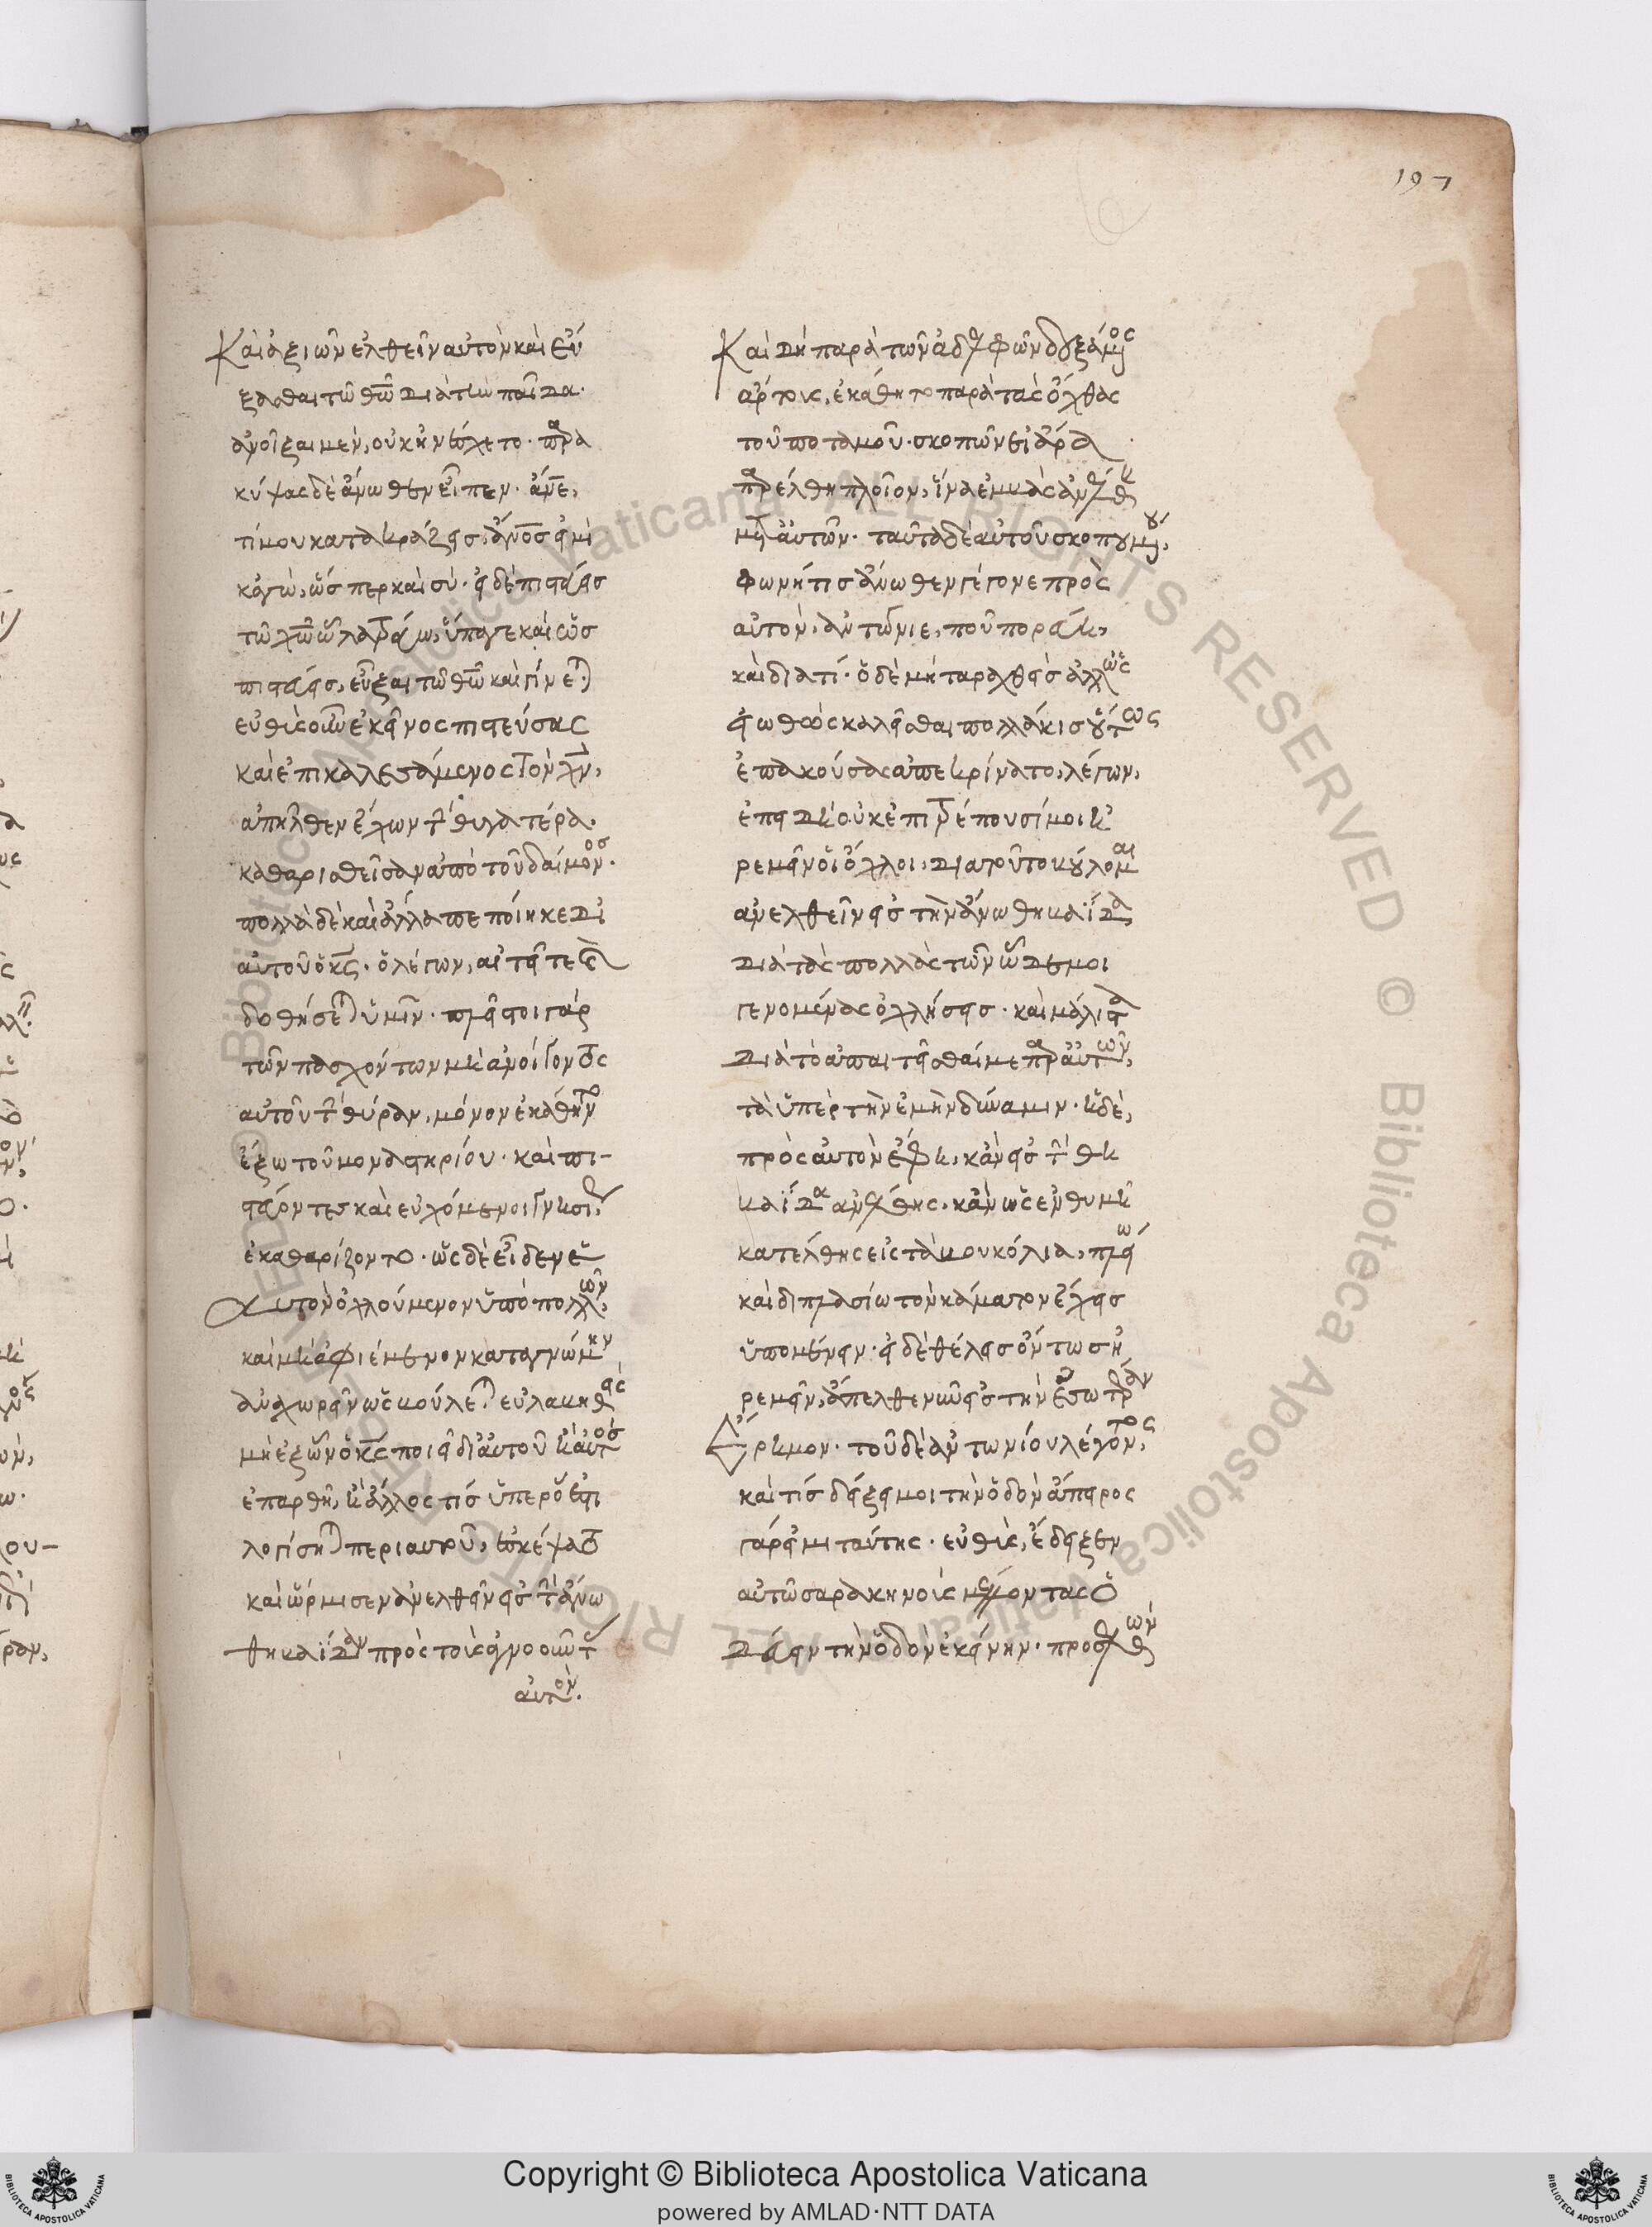 197
Καὶ ἀξιῶν ἐλθεῖν αὐτὸν καὶ εὔ
ξασθαι τῶ θ̅ω̅ διὰ τὴν παῖδα·
ἀνοῖξαι μὲν, οὐκ ἠνέσχετο· παρα
κύψας δὲ ἄνωθεν εἶπεν· ἄν̅ε̅,
τί μου κατακράζεις; ἄν̅ο̅ς̅ εἰμὶ
κἀγὼ, ὥσπερ καὶ σύ· εἰ δὲ πιστεύεις
τῶ χ̅ω̅ ὧ λατρεύω, ὕπαγε καὶ ὡς
πιστεύεις, εὖξαι τῶ θ̅ω̅ καὶ γίνεται·
εὐθὺς οὖν ἐκεῖνος πιστεύσας
καὶ ἐπικαλεσάμενος τὸν χ̅ν̅,
ἀπῆλθεν ἔχων τὴν θυγατέρα
καθαρισθεῖσαν ἀπὸ τοῦ δαίμονος·
πολλὰ δὲ καὶ ἄλλα πεποίηκε δι
αὐτοῦ ὁ κ̅ς̅· ὁ λέγων, αἰτεῖτε καὶ
δοθήσεται ὑμῖν· πλεῖστοι γὰρ
τῶν πασχόντων μὴ ἀνοίγοντος
αὐτοῦ τὴν θύραν, μόνον ἐκάθηντο
ἔξω τοῦ μοναστηρίου· καὶ πι-
στεύοντες καὶ εὐχόμενοι γνησίως
ἐκαθαρίζοντο· ὡς δὲ εἶδεν ἑ
αυτὸν ὀχλούμενον ὑπὸ πολλῶν,
καὶ μὴ ἀφιέμενον κατὰ γνώμην
ἀναχωρεῖν ὡς βούλεται εὐλαβηθεὶς
μὴ ἐξ ὧν ὁ κ̅ς̅ ποιεῖ δι αὐτοῦ ἢ αὐτὸς
ἐπαρθῆ, ἢ ἄλλος τίς ὑπὲρ ὅ ἐστι
λογίσηται περὶ αὐτοῦ, ἐσκέψατο
καὶ ὥρμησεν ἀνελθεῖν εἰς τὴν ἄνω
θηβαΐδαν πρὸς τοὺς ἀγνοοῦντας
αὐτόν.
Καὶ δὴ παρὰ τῶν ἀδελφῶν δεξάμενος
ἄρτους, ἐκάθητο παρὰ τὰς ὄχθας
τοῦ ποταμοῦ· σκοπῶν εἰ ἄρα
παρέλθη πλοῖον, ἵνα ἐμβὰς ἀνέλθη
μετ αὐτῶν· ταῦτα δὲ αὐτοῦ σκοπουμένου,
φωνή τις ἄνωθεν γέγονε πρὸς
αὐτόν, ἀντώνιε, ποῦ πορεύη,
καὶ διατί· ὁ δὲ μὴ ταραχθεὶς ἀλλ ὡς
εἰωθὼς καλεῖσθαι πολλάκις οὕτως
ἐπακούσας ἀπεκρίνατο, λέγων,
ἐπειδὴ οὐκ ἐπιτρέπουσί μοι ἠ
ρεμεῖν οἱ ὄχλοι, διατοῦτο βούλομαι
ἀνελθεῖν εἰς τὴν ἄνω θηβαΐδα
διὰ τὰς πολλὰς τῶν ὧδέ μοι
γενομένας ὀχλήσεις· καὶ μάλιστα
διὰ τὸ ἀπαιτεῖσθαί με παρ αὐτῶν,
τὰ ὑπὲρ τὴν ἐμὴν δύναμιν· ἡ δὲ,
πρὸς αὐτὸν ἔφη, κἂν εἰς τὴν θη
βαΐδα ἀνέλθης, κἂν ὡς ἐνθυμῆ
κατέλθης εἰς τὰ βουκόλια, πλείω
καὶ διπλασίω τὸν κάματον ἔχεις
ὑπομένειν· εἰ δὲ θέλεις ὄντως ἠ
ρεμεῖν, ἄπελθε νῦν εἰς τὴν ἐσωτέραν
ἔρημον· τοῦ δὲ ἀντωνίου λέγοντος,
καὶ τίς δείξει μοι τὴν ὁδὸν ἄπειρος
γάρ εἰμι ταύτης· εὐθὺς, ἔδειξεν
αὐτῶ σαρακηνοὺς μέλλοντας ὁ
δεύειν τὴν ὁδὸν ἐκείνην· προσελθὼν
Copyright © Biblioteca Apostolica Vaticana
powered by AMLAD·NTT DATA